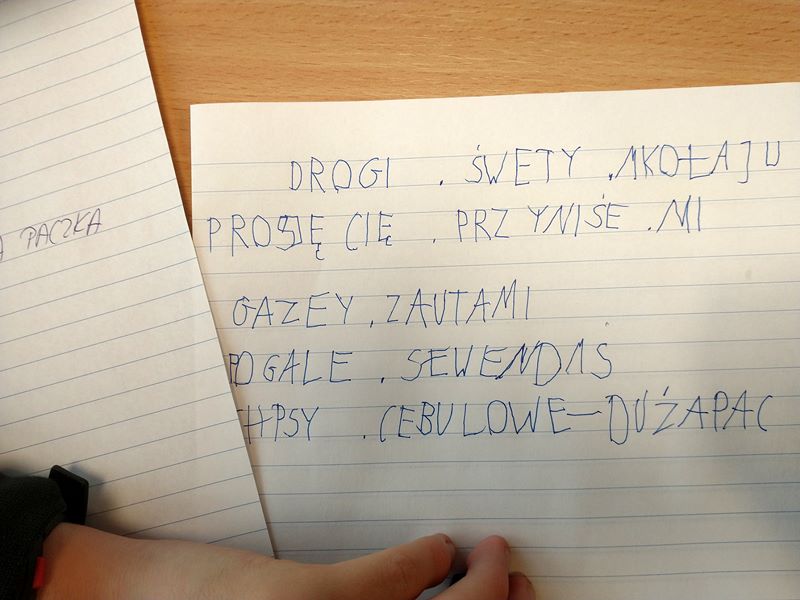 DROGI . ŚWETY .MKOŁAJU
PROSIĘ CIĘ . PRZYNIŚE .MI
GAZEY . ZAUTAMI
ROGALE . SEWENDAS
CHPSY . CEBULOWE-DUŻAPAC
A PACZKA